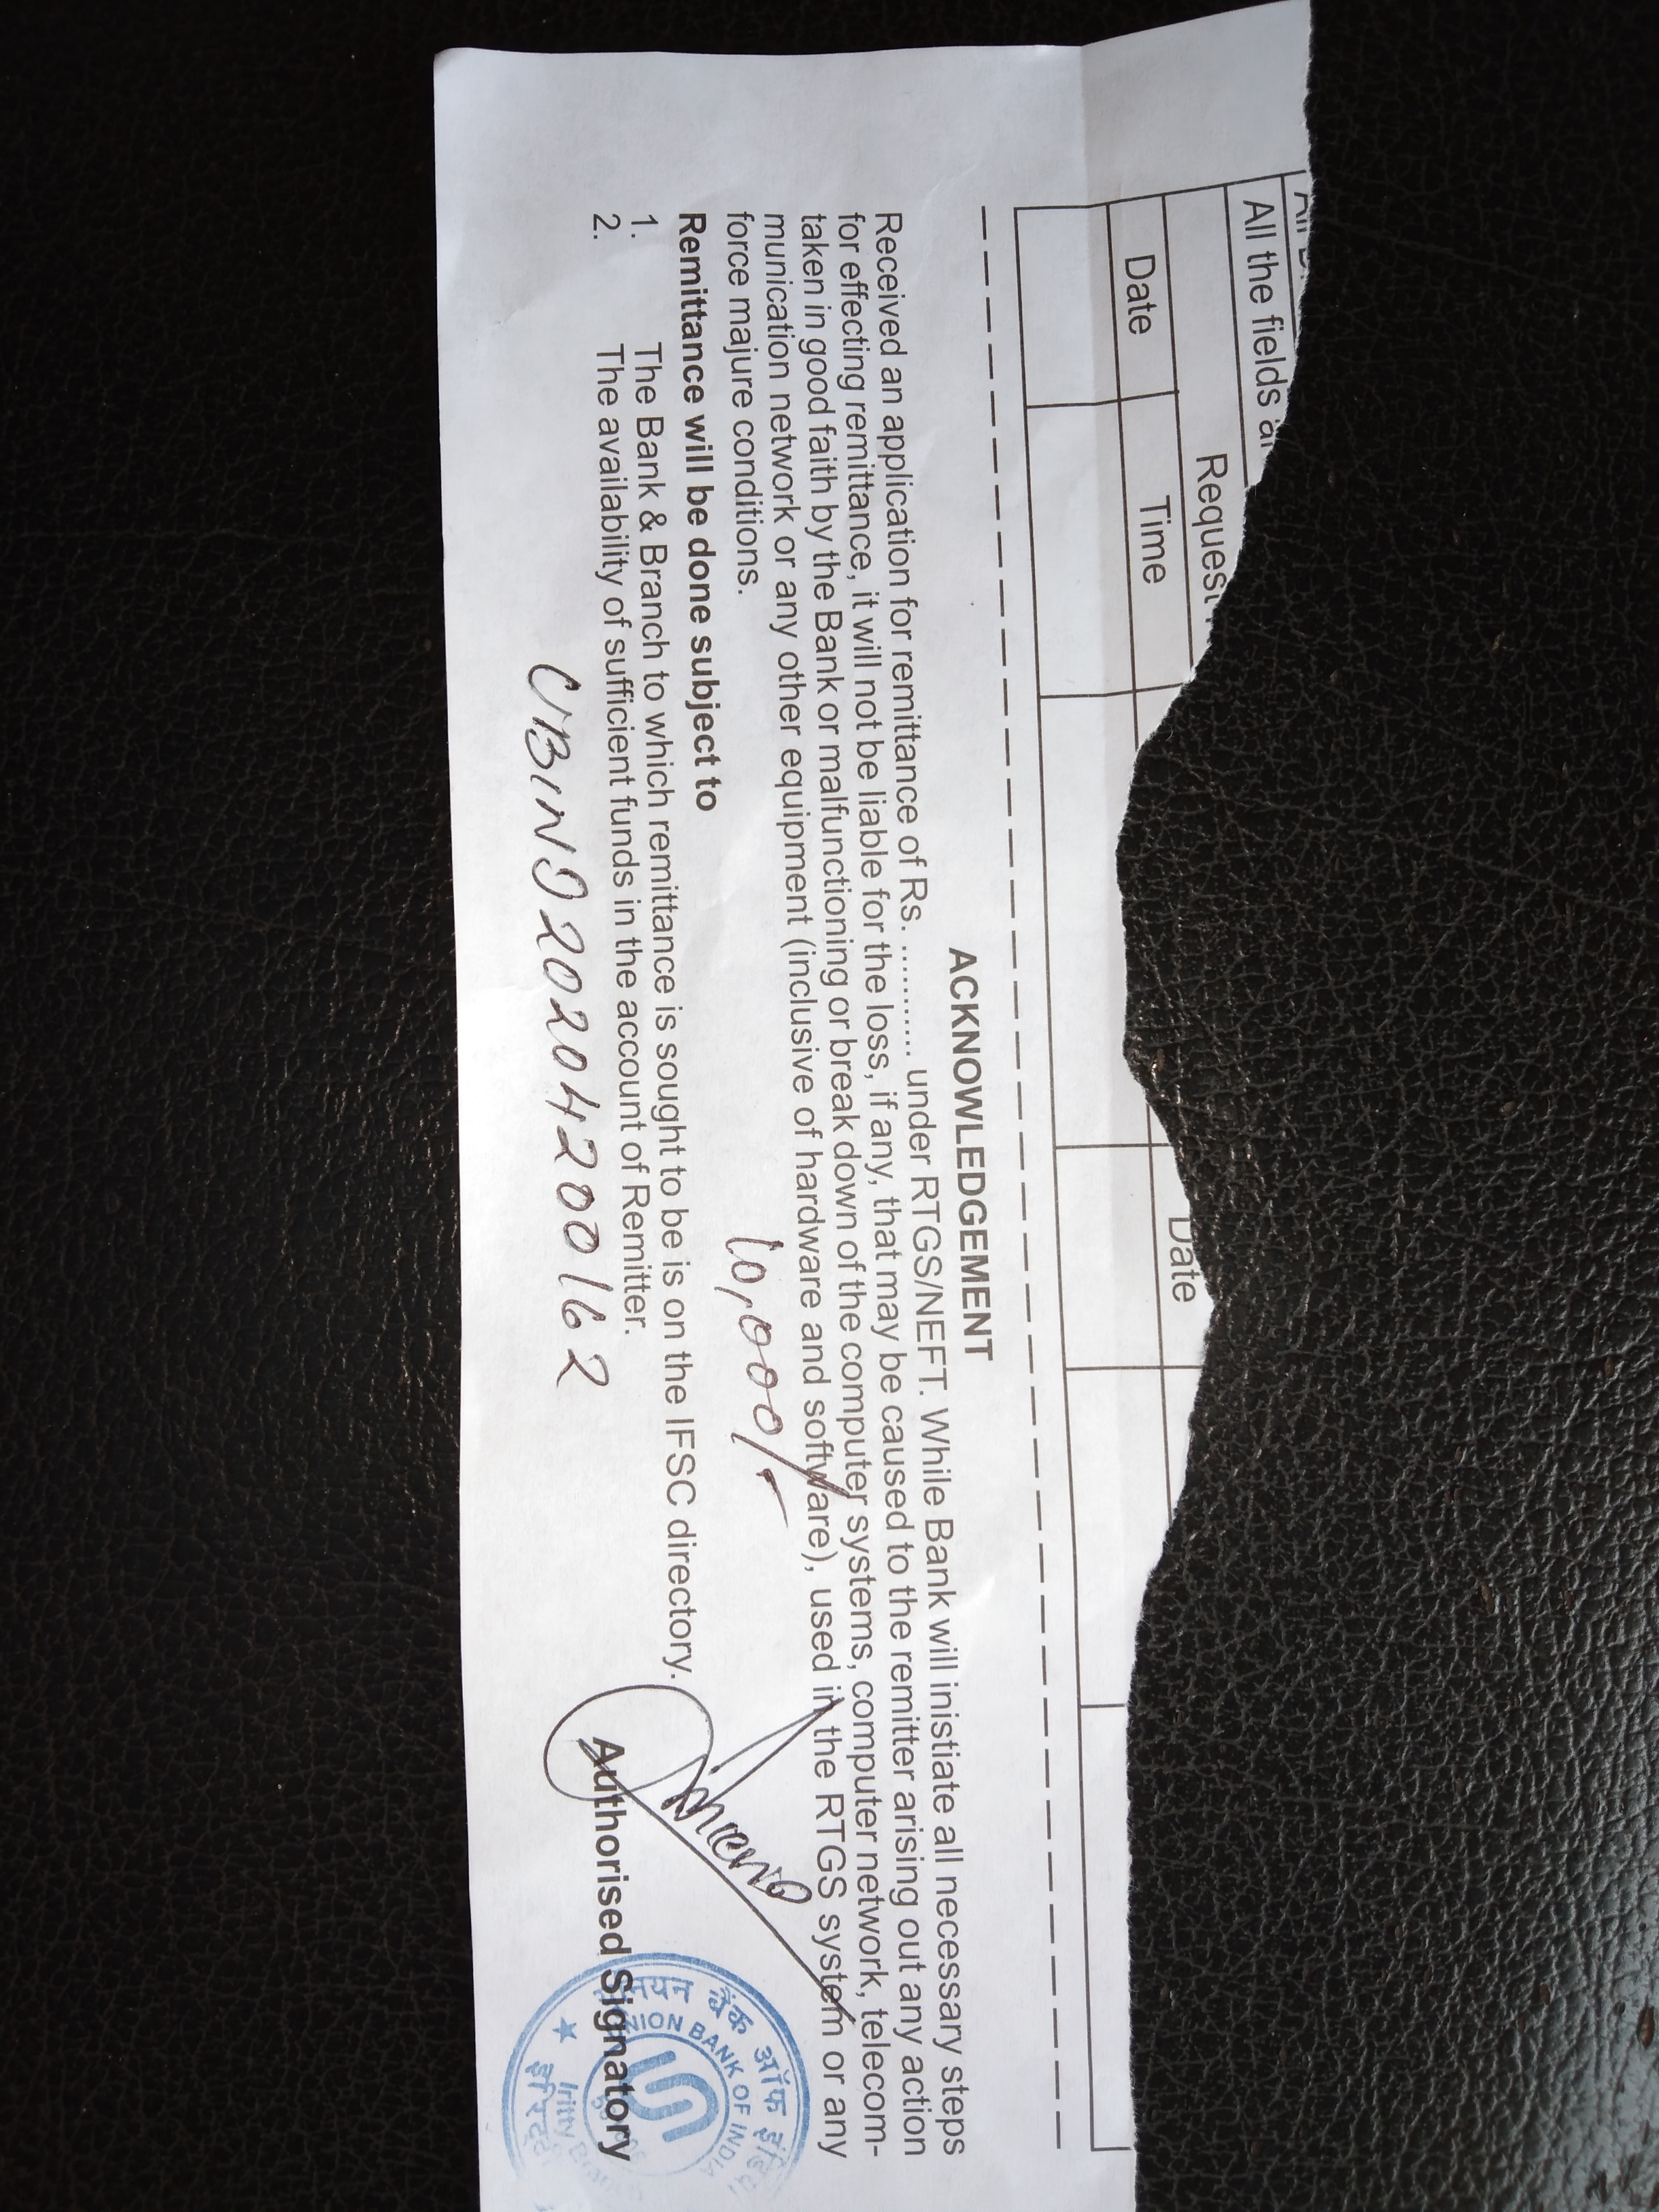 All the fields
Request
Date
Date
Time
ACKNOWLEDGEMENT
Received an application for remittance of Rs. ........... under RTGS/NEFT. While Bank will inistiate all necessary steps
for effecting remittance, it will not be liable for the loss, if any, that may be caused to the remitter arising out any action
taken in good faith by the Bank or malfunctioning or break down of the computer systems, computer network, telecom-
munication network or any other equipment (inclusive of hardware and software), used in the RTGS system or any
force majure conditions.
10,000/-
Remittance will be done subject to
1. The Bank & Branch to which remittance is sought to be is on the IFSC directory.
2. The availability of sufficient funds in the account of Remitter.
UBINJ20204200162
Authorised Signatory
बैंक ऑफ
UNION BANK OF INDIA
Iritty